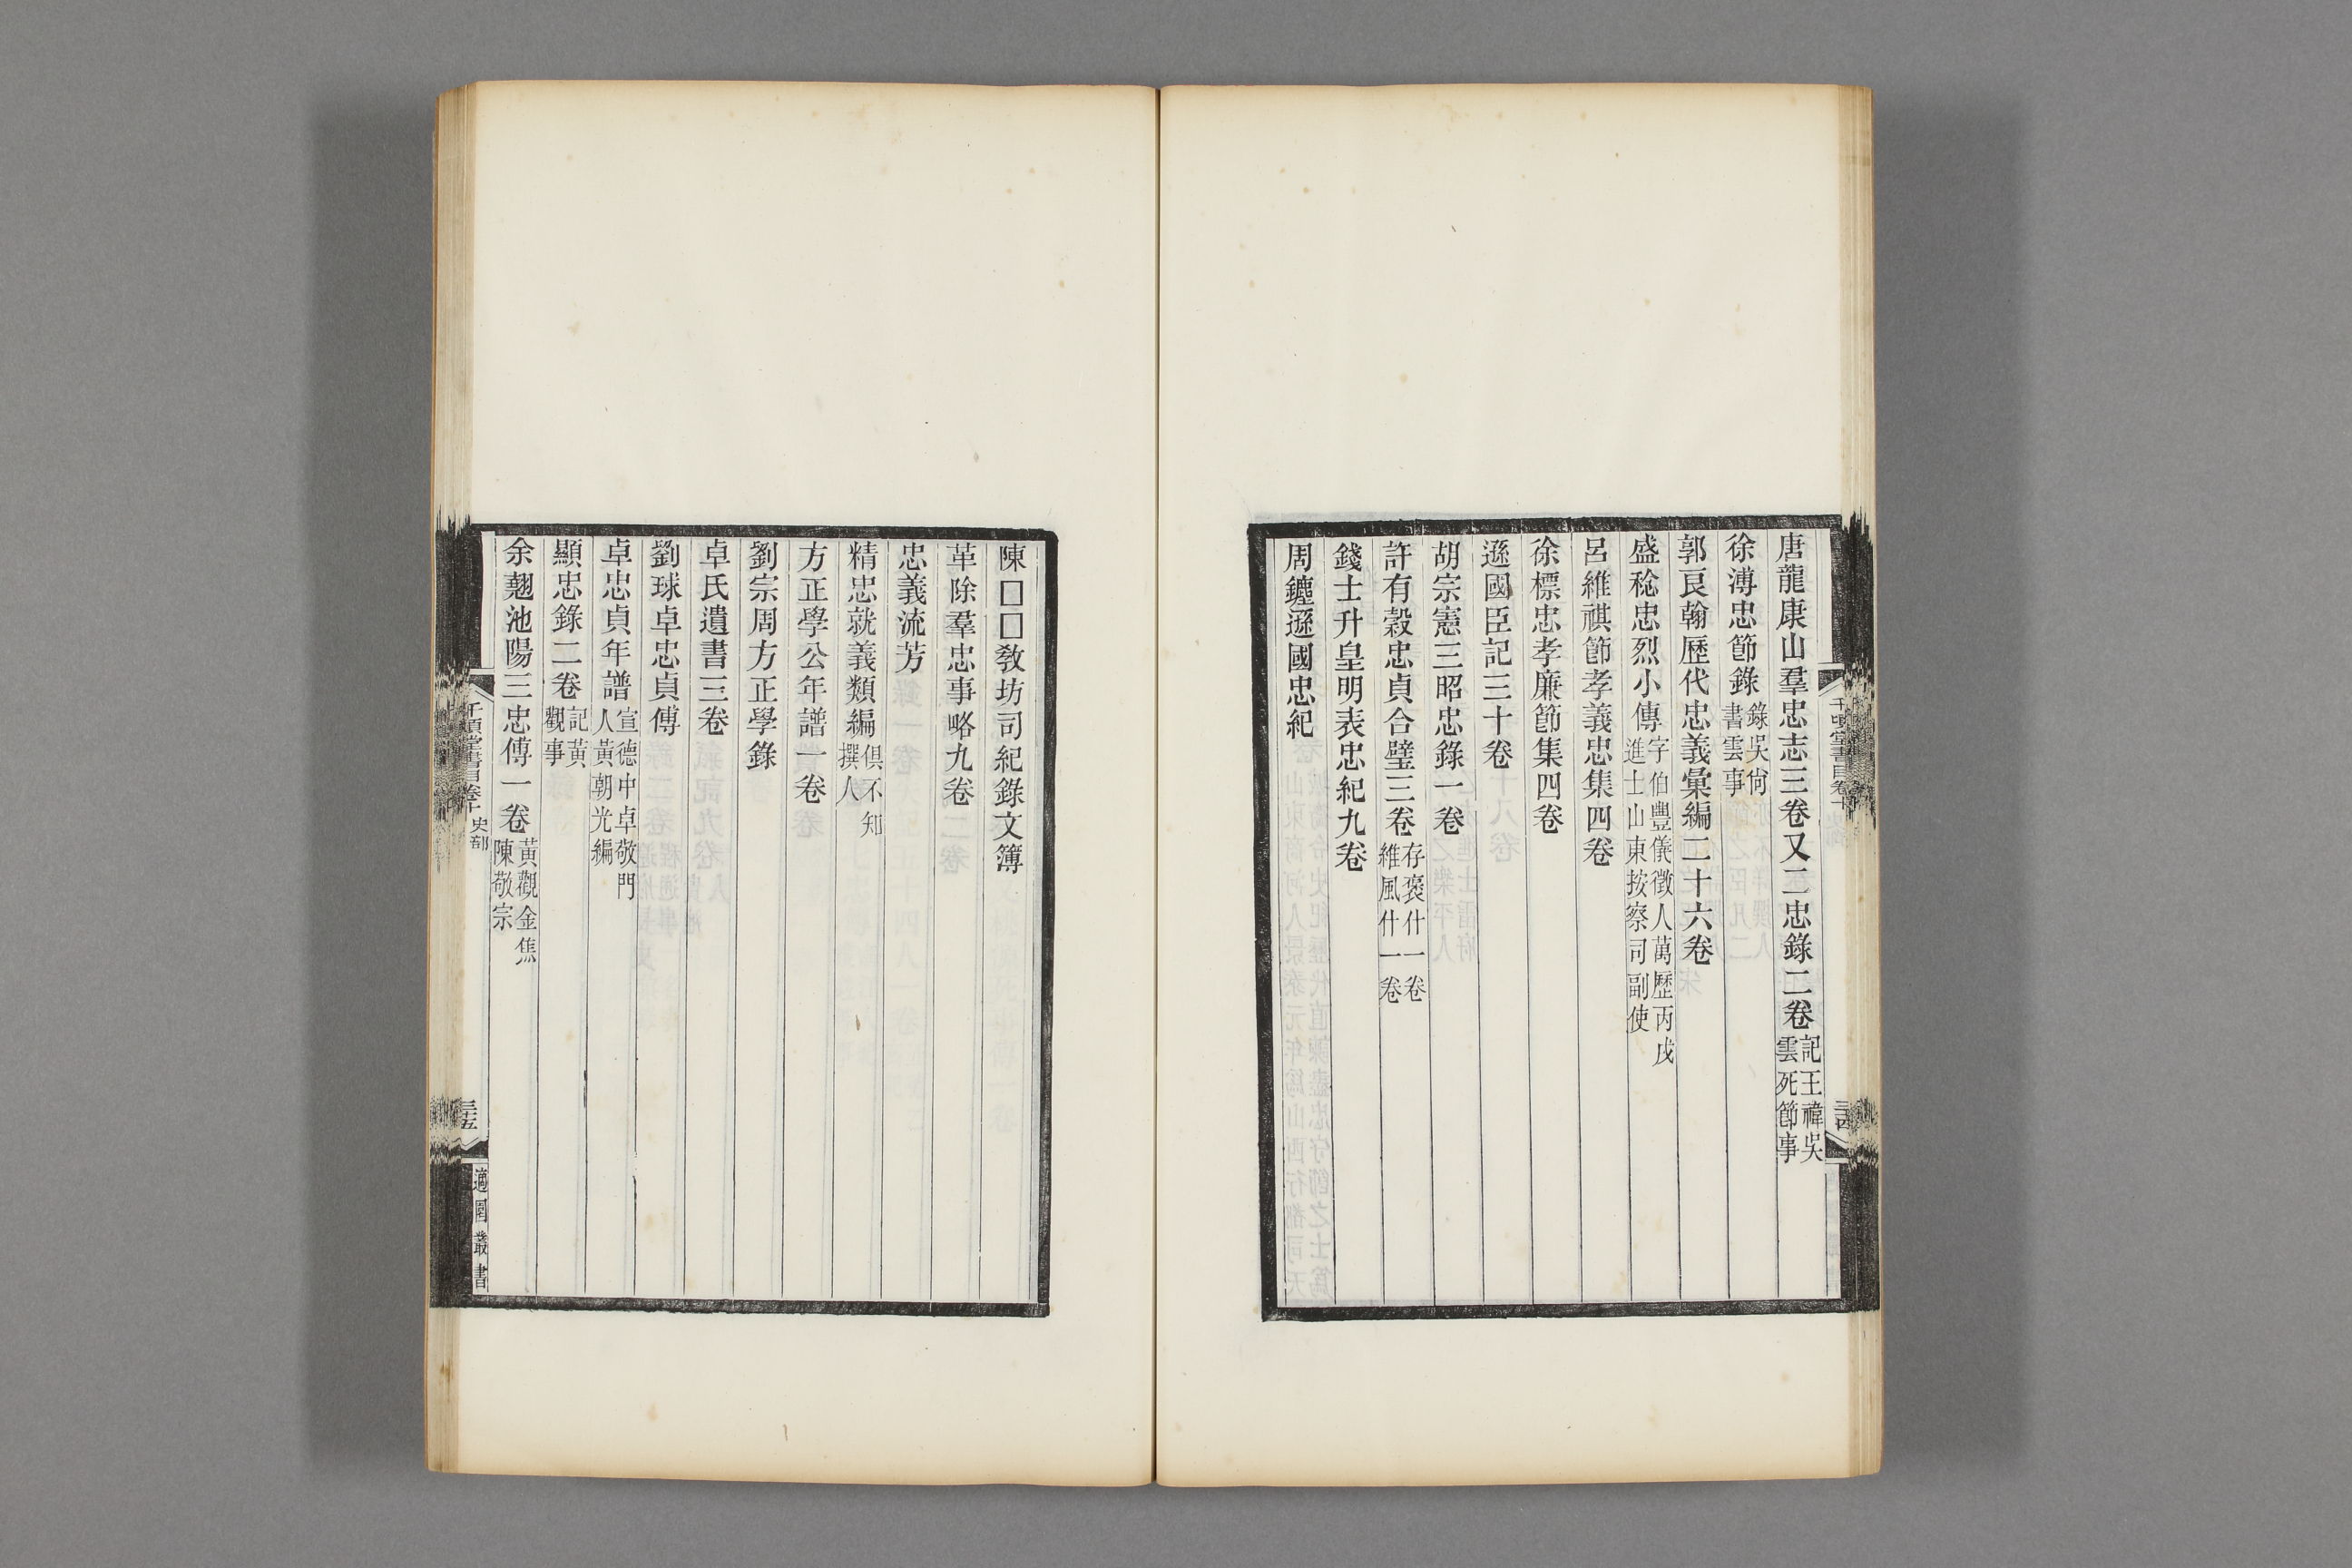 唐龍康山羣忠志三卷又二忠錄二卷記王禕吳雲死節事
徐溥忠節錄錄吳尙書雲事
郭良翰歷代忠義彙編二十六卷
盛稔忠烈小傳字伯豐儀徵人萬歷丙戌進士山東按察司副使
呂維祺節孝義忠集四卷
徐標忠孝廉節集四卷
遜國臣記三十卷
胡宗憲三昭忠錄一卷
許有穀忠貞合璧三卷存褒什一卷維風什一卷
錢士升皇明表忠紀九卷
周鑣遜國忠紀
千頃堂書目卷十
三十四
陳□□敎坊司紀錄文簿
革除羣忠事略九卷
忠義流芳
精忠就義類編俱不知撰人
方正學公年譜一卷
劉宗周方正學錄
卓氏遺書三卷
劉球卓忠貞傳
卓忠貞年譜宣德中卓敬門人黃朝光編
顯忠錄二卷記黃觀事
余翹池陽三忠傳一卷黃觀金焦陳敬宗
千頃堂書目卷十 史部
三十五
適園叢書